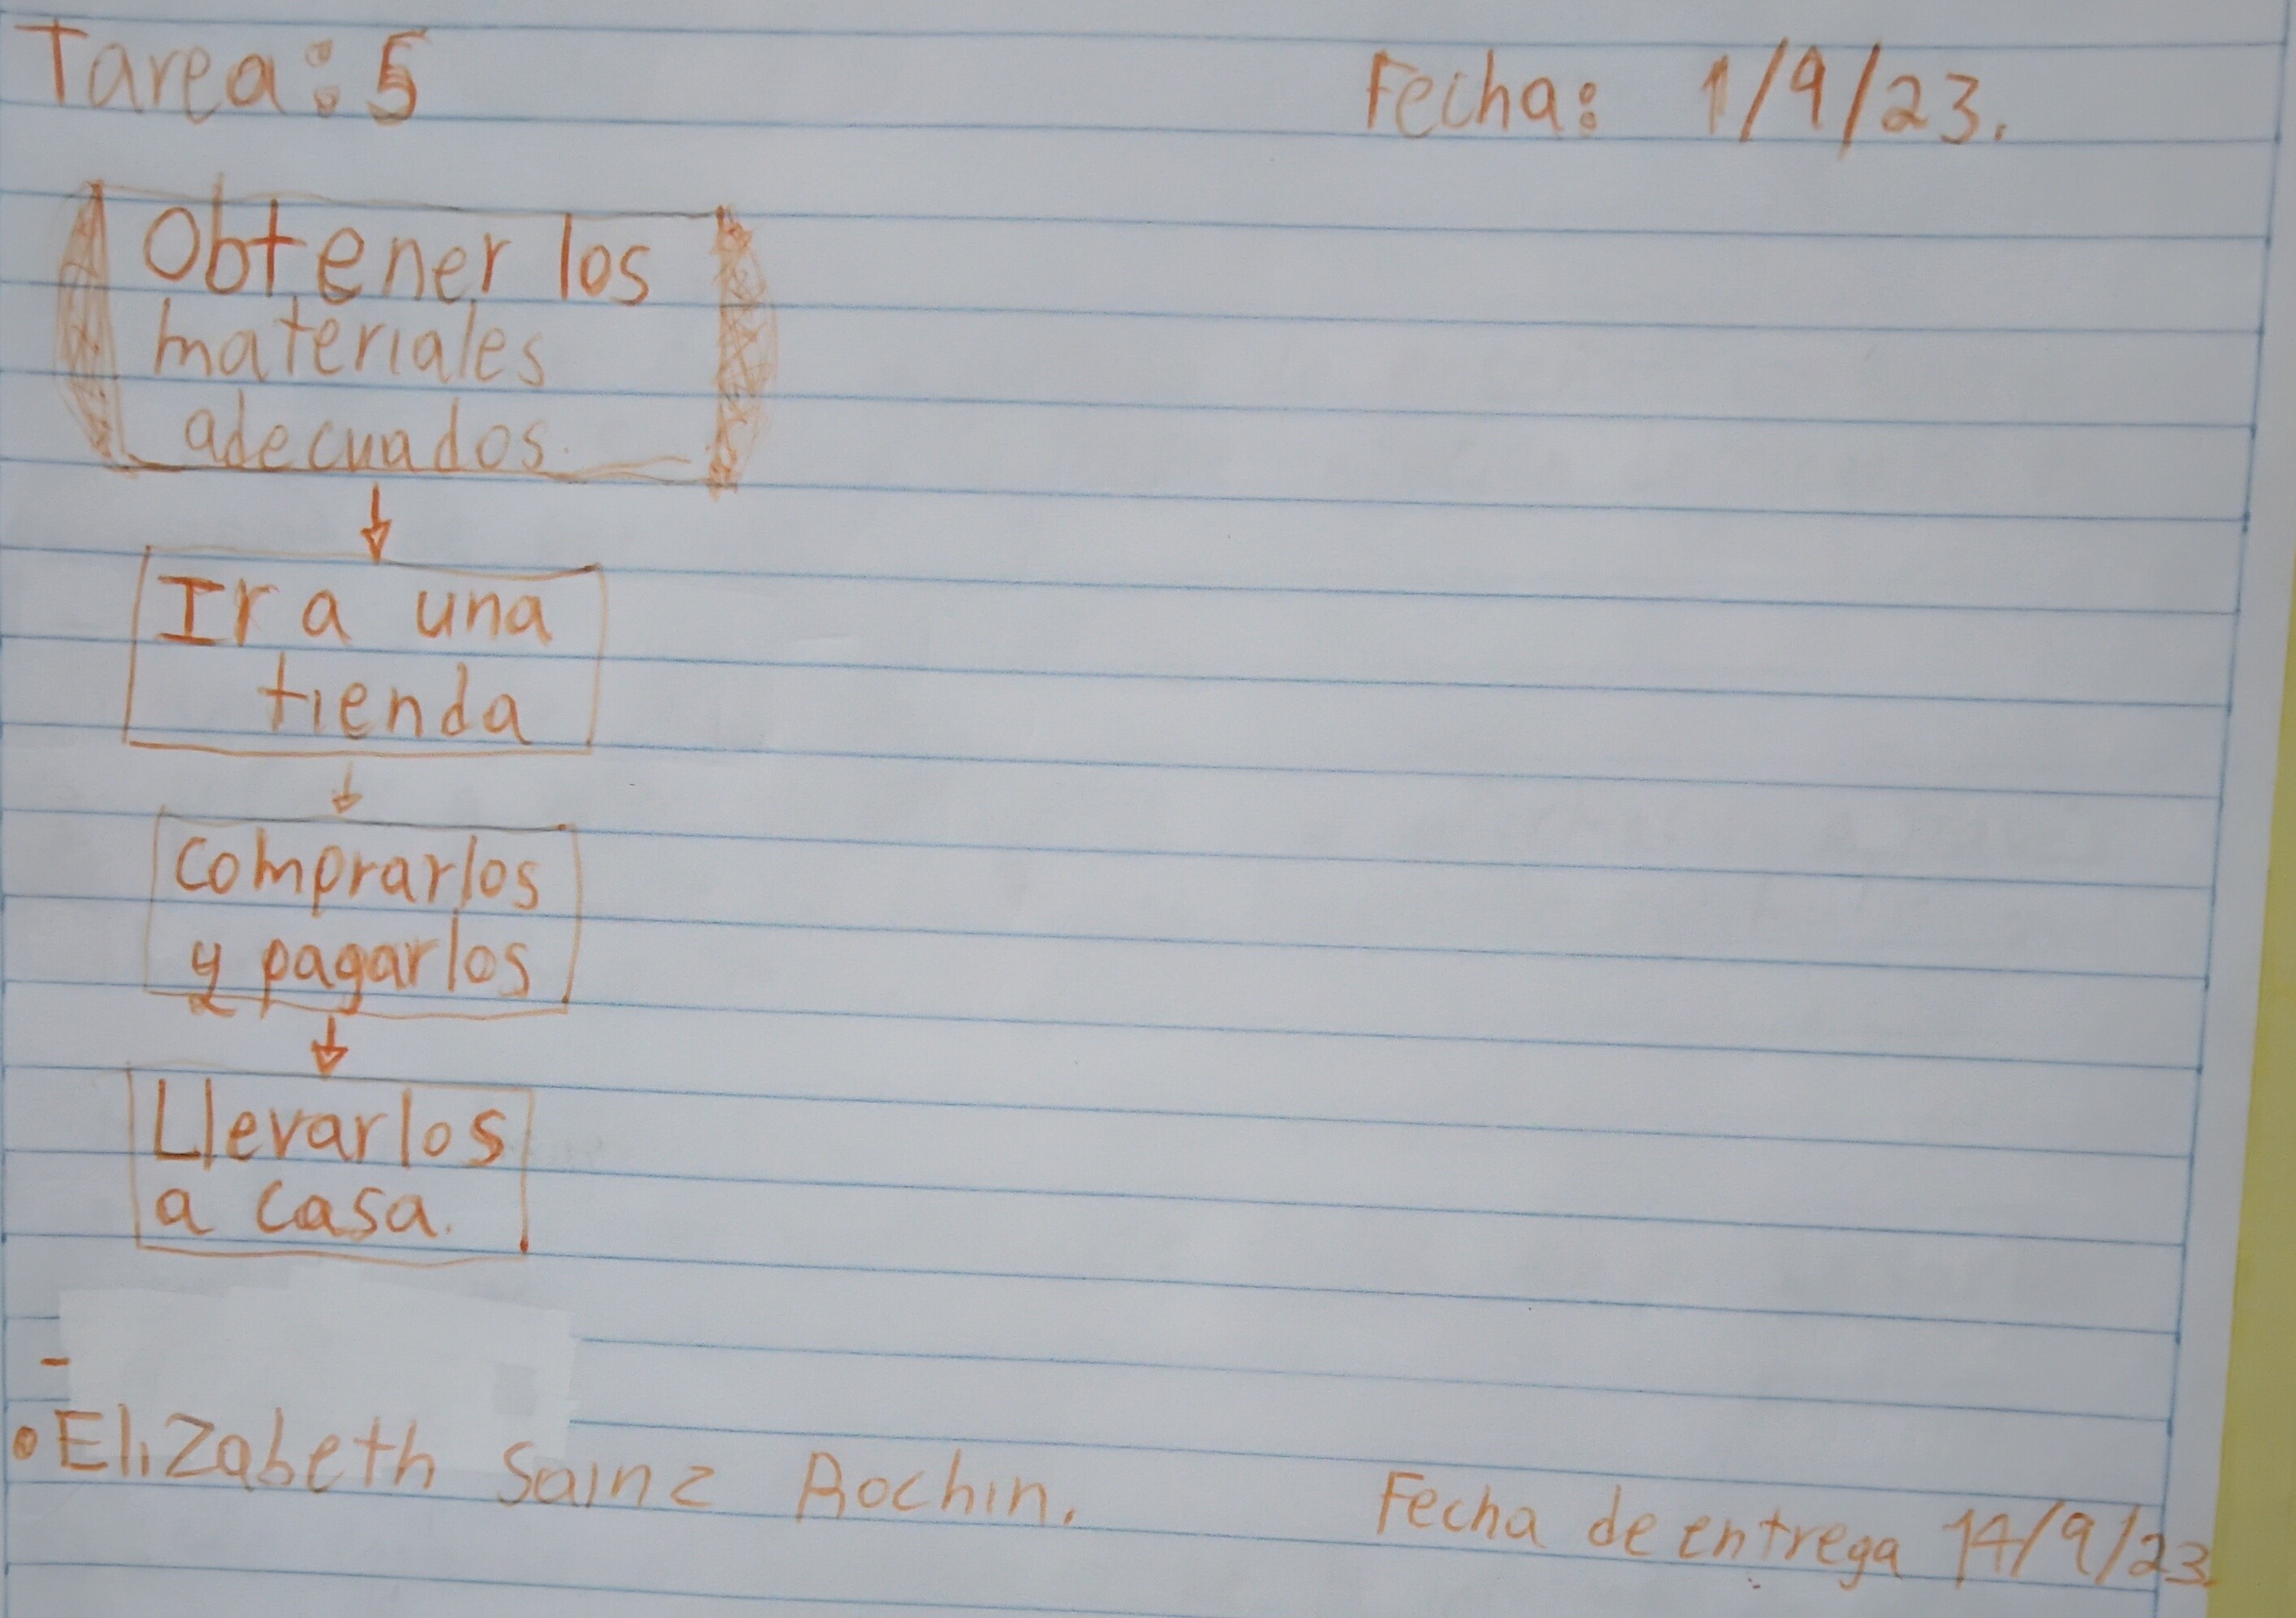 Tarea: 5
Fecha: 1/9/23.
Obtener los
materiales
adecuados.
Ir a una
tienda
comprarlos
y pagarlos
Llevarlos
a casa.
-
•Elizabeth Sainz Rochin.
Fecha de entrega 14/9/23.